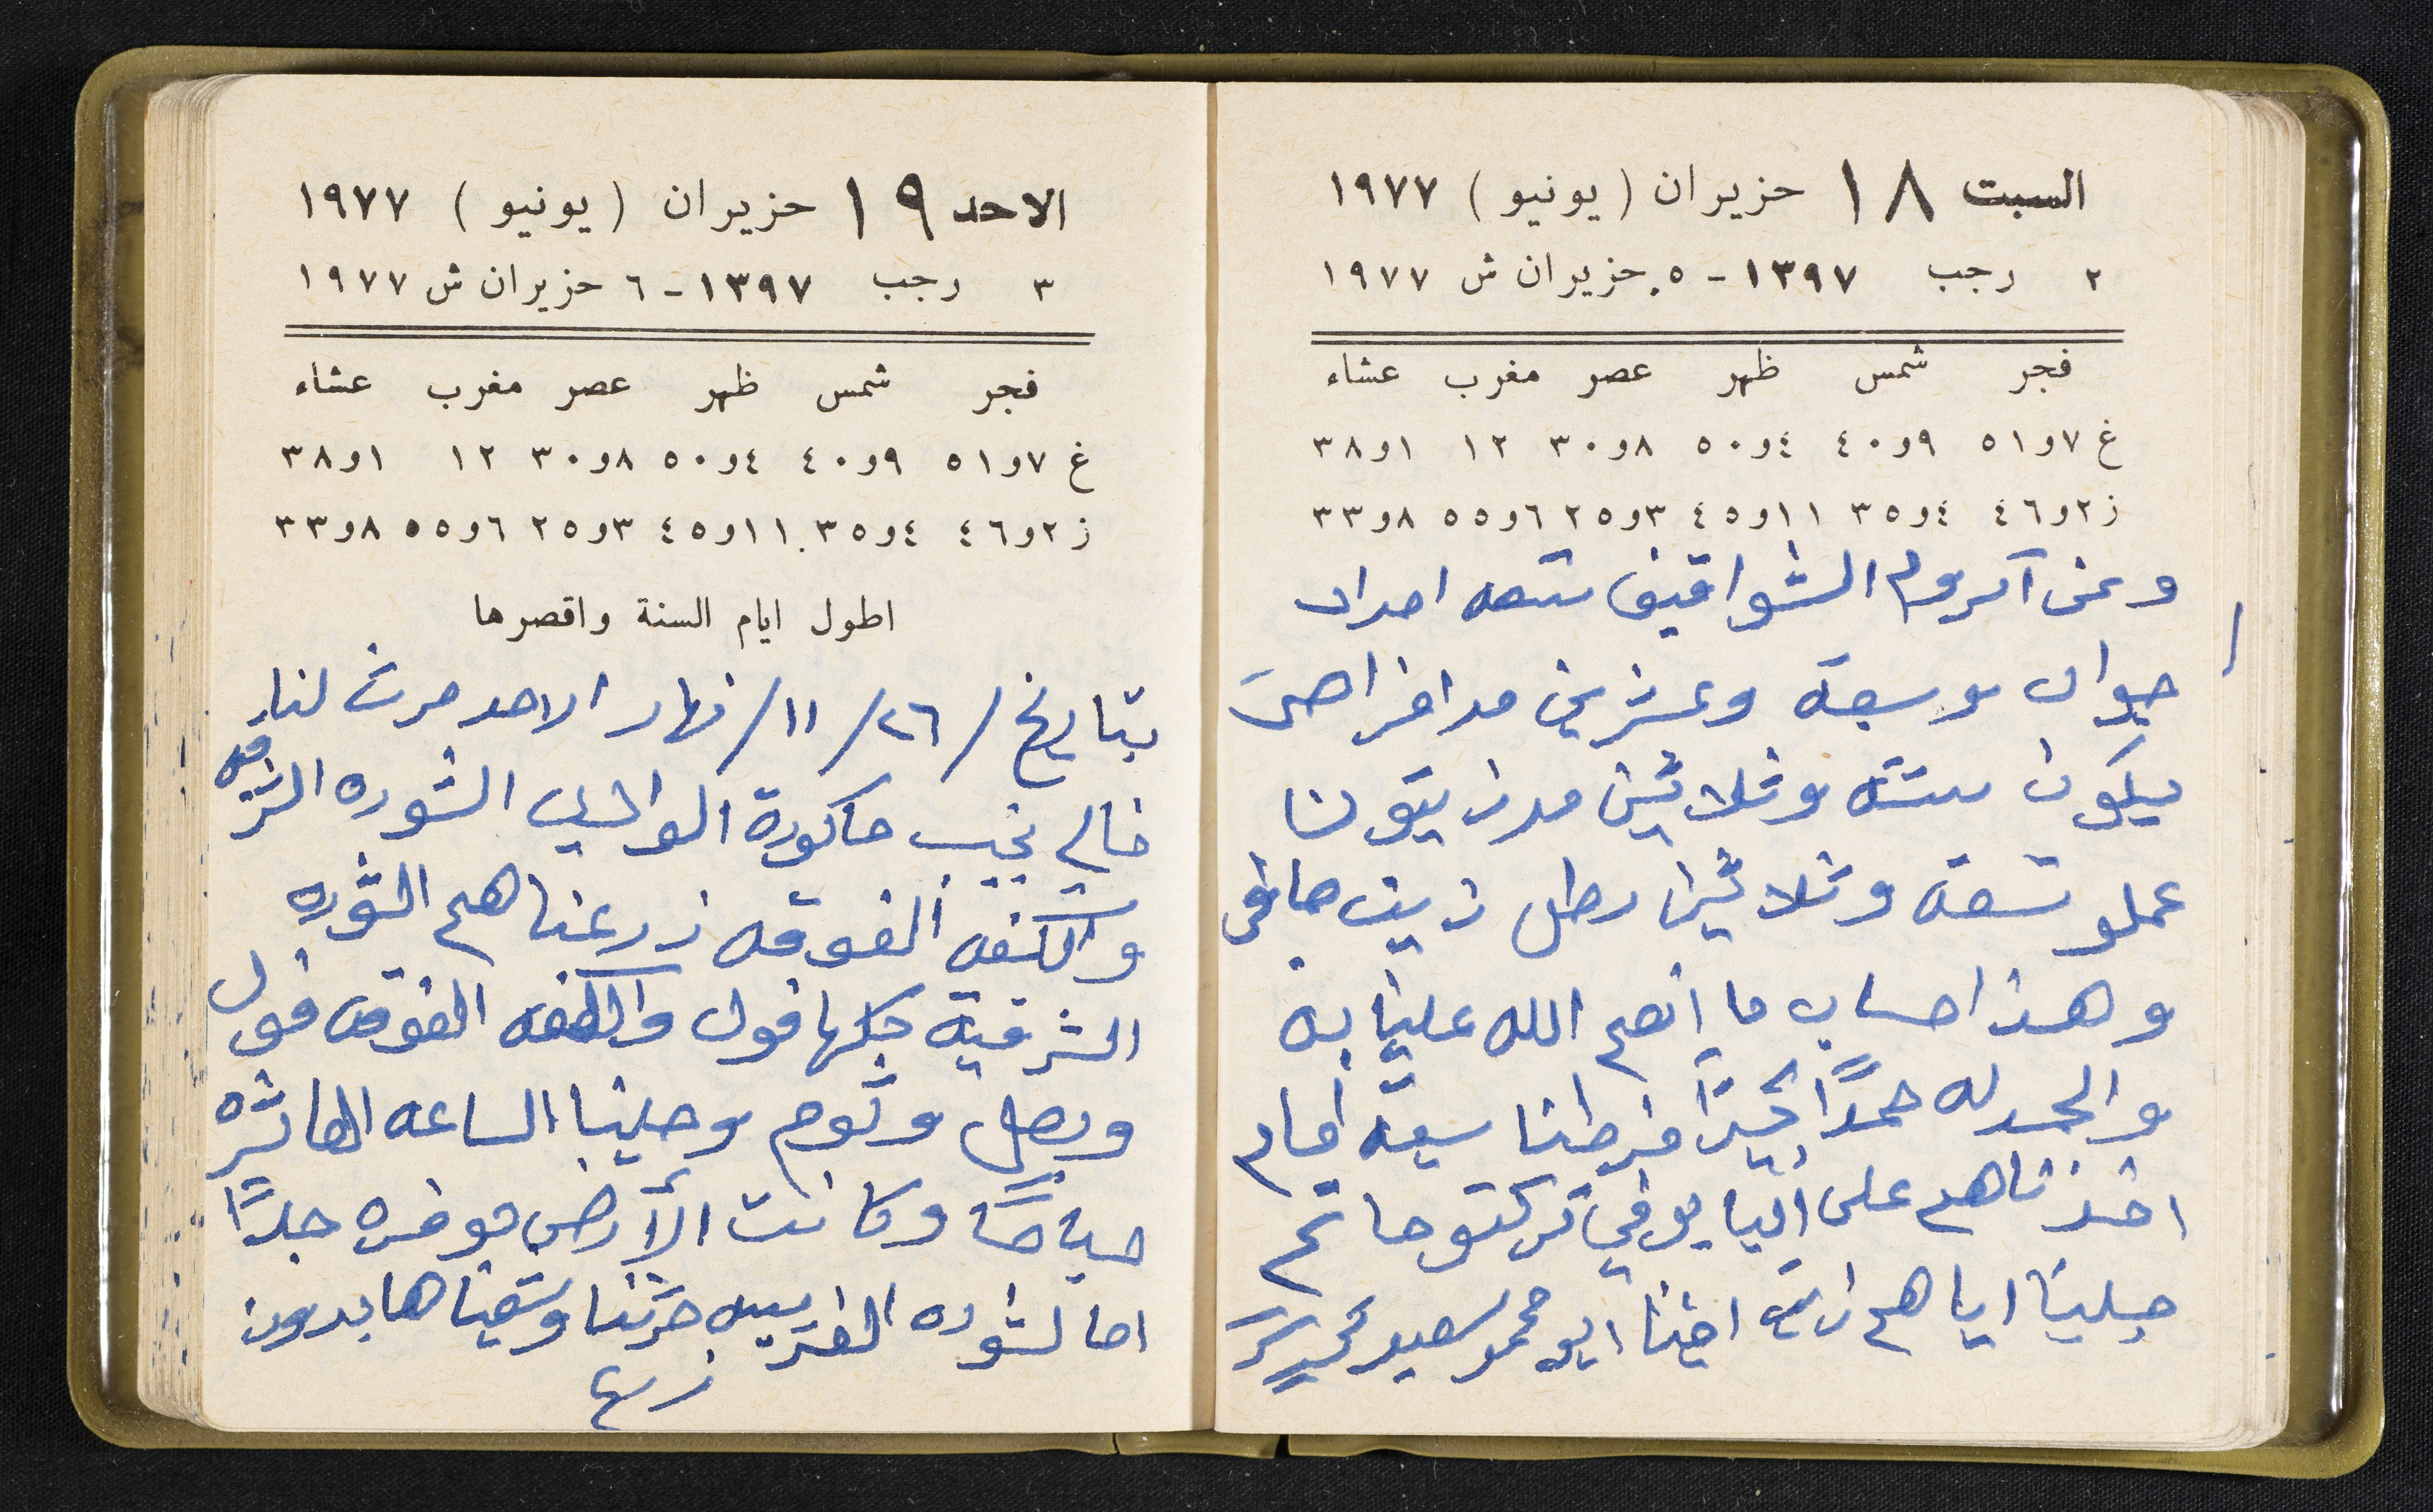 السبت ١٨ حزيران (يونيو) ١٩٧٧
٢ رجب ١٣٩٧ - ٥ حزيران ش ١٩٧٧
فجر شمس ظهر عصر مغرب عشاء
غ ٧و٥١ ٩و٤٠ ٤و٥٠ ٨و٣٠ ١٢ ١و٣٨
ز ٢و٤٦ ٤و٣٥ ١١و٤٥ ٣و٢٥ ٦و٥٥ ٨و٣٣
وعن الشواقيف امداد
جوال وسبعة وعشرين مد افراحى
بيكون سته وثلاثين مد زيتونا
عملو تسعة وثلاثين رطل زيت صافي
وهذا حساب ما انعم الله علينا به
والحمد له حمدًا كثيرًا فرطنا سبعة ايام
اخذناهم على
جبلنا اياهم اخينا ابو محمد سعيد
الاحد ١٩ حزيران (يونيو) ١٩٧٧
٣ رجب ١٣٩٧ - ٦ حزيران ش ١٩٧٧
فجر شمس ظهر عصر مغرب عشاء
غ ٧و٥١ ٩و٤٠ ٤و٥٠ ٨و٣٠ ١٢ ١و٣٨
ز ٢و٤٦ ٤و٣٥ ١١و٤٥ ٣و٢٥ ٦و٥٥ ٨و٣٣
اطول ايام السنة واقصرها
بتاريخ /٢٦/١١/ نهار الاحد حرث لنا
خالي نجيب حاكورة الشوره الشرقيه
والكتفه الفوقه زرعناهم الشوره
الشرقية كلها فول والكتفه الفوقه فول
وبصل وثوم وصلينا الساعه العاشره
صباحًا وكانت الأرض موفره جدًا
اما لشوره الغربيه حرثنا وسقيناها بدون
زرع